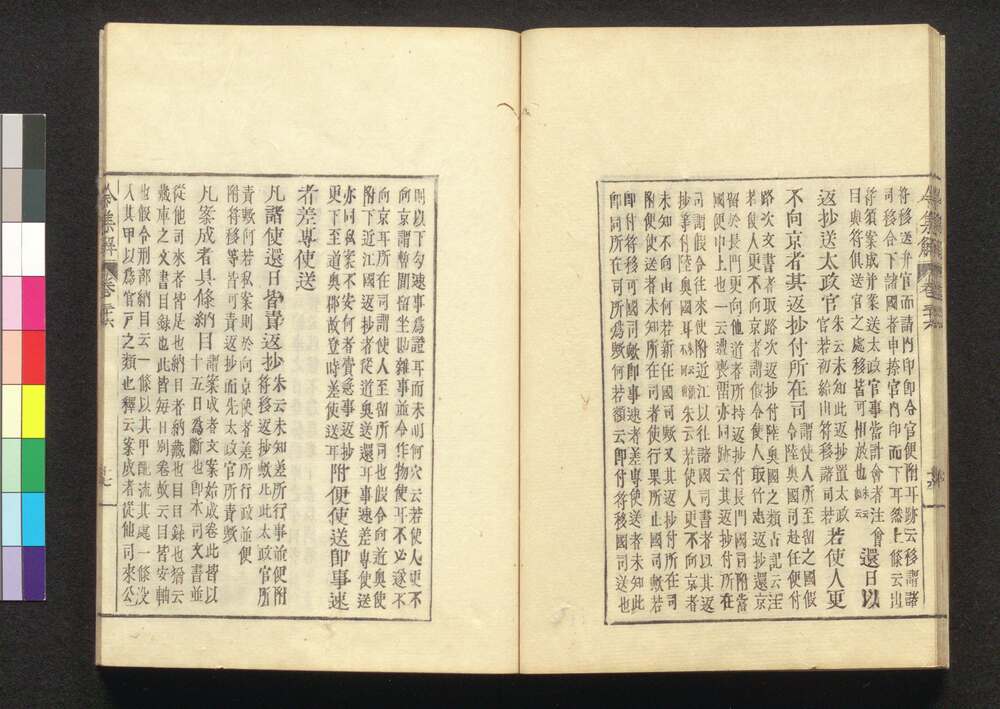 符移送弁官而請内印即令官便附耳跡云移謂諸
司移令下諸國者申捺官内印而下耳然上條云出
符須案成并案送太政官事皆計會者注會
目與符俱送官之處移皆可相放也
還日以
返抄送太政官
朱云未知此返抄置太政
官若初給出符移諸司若
若使人更
不向京者其返抄付所在司
謂使人所至留之國假
令陸奥國司赴任便付
路次文書者取路次返抄付陸奥國之類古記云注
若使人更不向京者謂假令使人取竹志返抄還京
留於長門更向他道者所持返抄付長門國司附當
國便申上也一云遭喪留亦同跡云其返抄付所在
司謂假令往來使附近江以往諸國司書者以其返
抄事付陸奥國耳朱云若使人更不向京者
未知不向由何若新任國司歟又其返抄付所在司
附便使送者未知所在司者使行果所止國司歟若
即付符移可國司歟即事速者差專使送者未知此
即同司所在所爲歟何若額云即付符移國司送也
令集解 卷三十六
問以下勾速事爲證耳而未明何穴云若使人更不
向京謂暫間留生勘雜事並令作物使耳不必遂不
向京耳所在司謂使人至留所司也假令向道奥使
附下近江國返抄者從道奥送還耳事速差專使送
亦同案不安何者貴忩事返抄
更下至道奥郡故登時差使送耳
附便使送即事速
者差專使送
凡諸使還日皆責返抄
朱云未知差所行事並便附
符移返抄歟凡此太政官所
責歟何若私案則於向京使者差所行政並便
附符移等皆可責返抄而先太政官所責歟
凡案成者具條納目
謂案成者文案始成卷此皆以
十五日爲斷也即本司文書並
從他司來者皆是也納目者納藏也目目録也猶云
幾庫之文書目録也此皆毎日別卷故云目皆安軸
也假令刑部納目云一條以其甲配流其處一條沒
人其甲以爲官戸之類也釋云案成者從他司來公
令集解 卷三十六